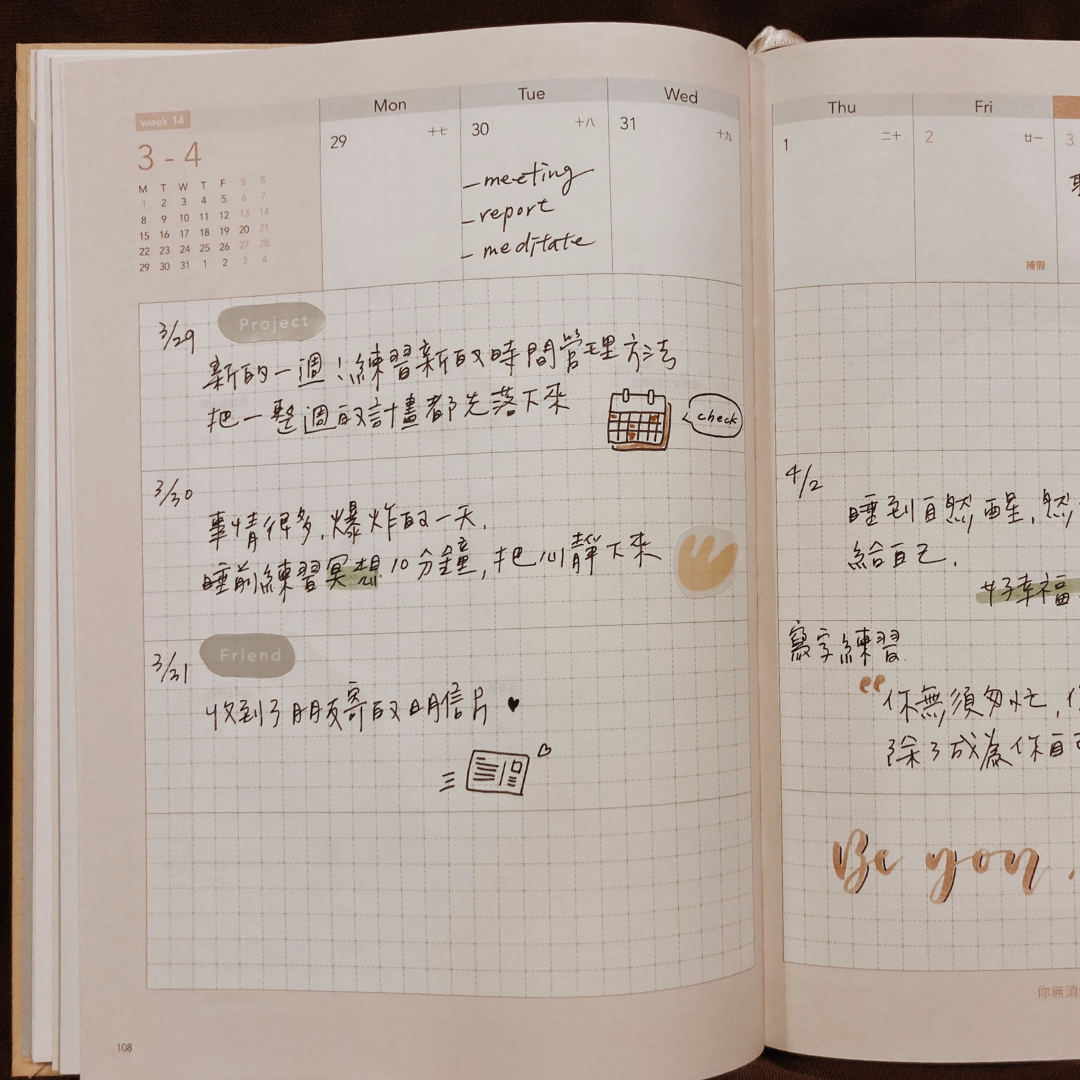 week 14
3 - 4
M T W T F S S
1 2 3 4 5 6 7
8 9 10 11 12 13 14
15 16 17 18 19 20 21
22 23 24 25 26 27 28
29 30 31 1 2 3 4
Mon
29 十七
Tue
30 十八
- meeting
- report
- meditate
Wed
31 十九
3/29 Project
新的一週！練習新的時間管理方法
把一整週的計畫都先落下來
check
3/30
事情很多,爆炸的一天.
睡前練習冥想10分鐘,把心靜下來
3/31 Friend
收到了朋友寄的明信片 ♥
108
Thu
1 二十
Fri
2 廿一
補假
3
4/2
睡到自然醒,然
給自己.
好幸福
寫字練習
你無須匆忙,
除了成為你自
Be you
你無須